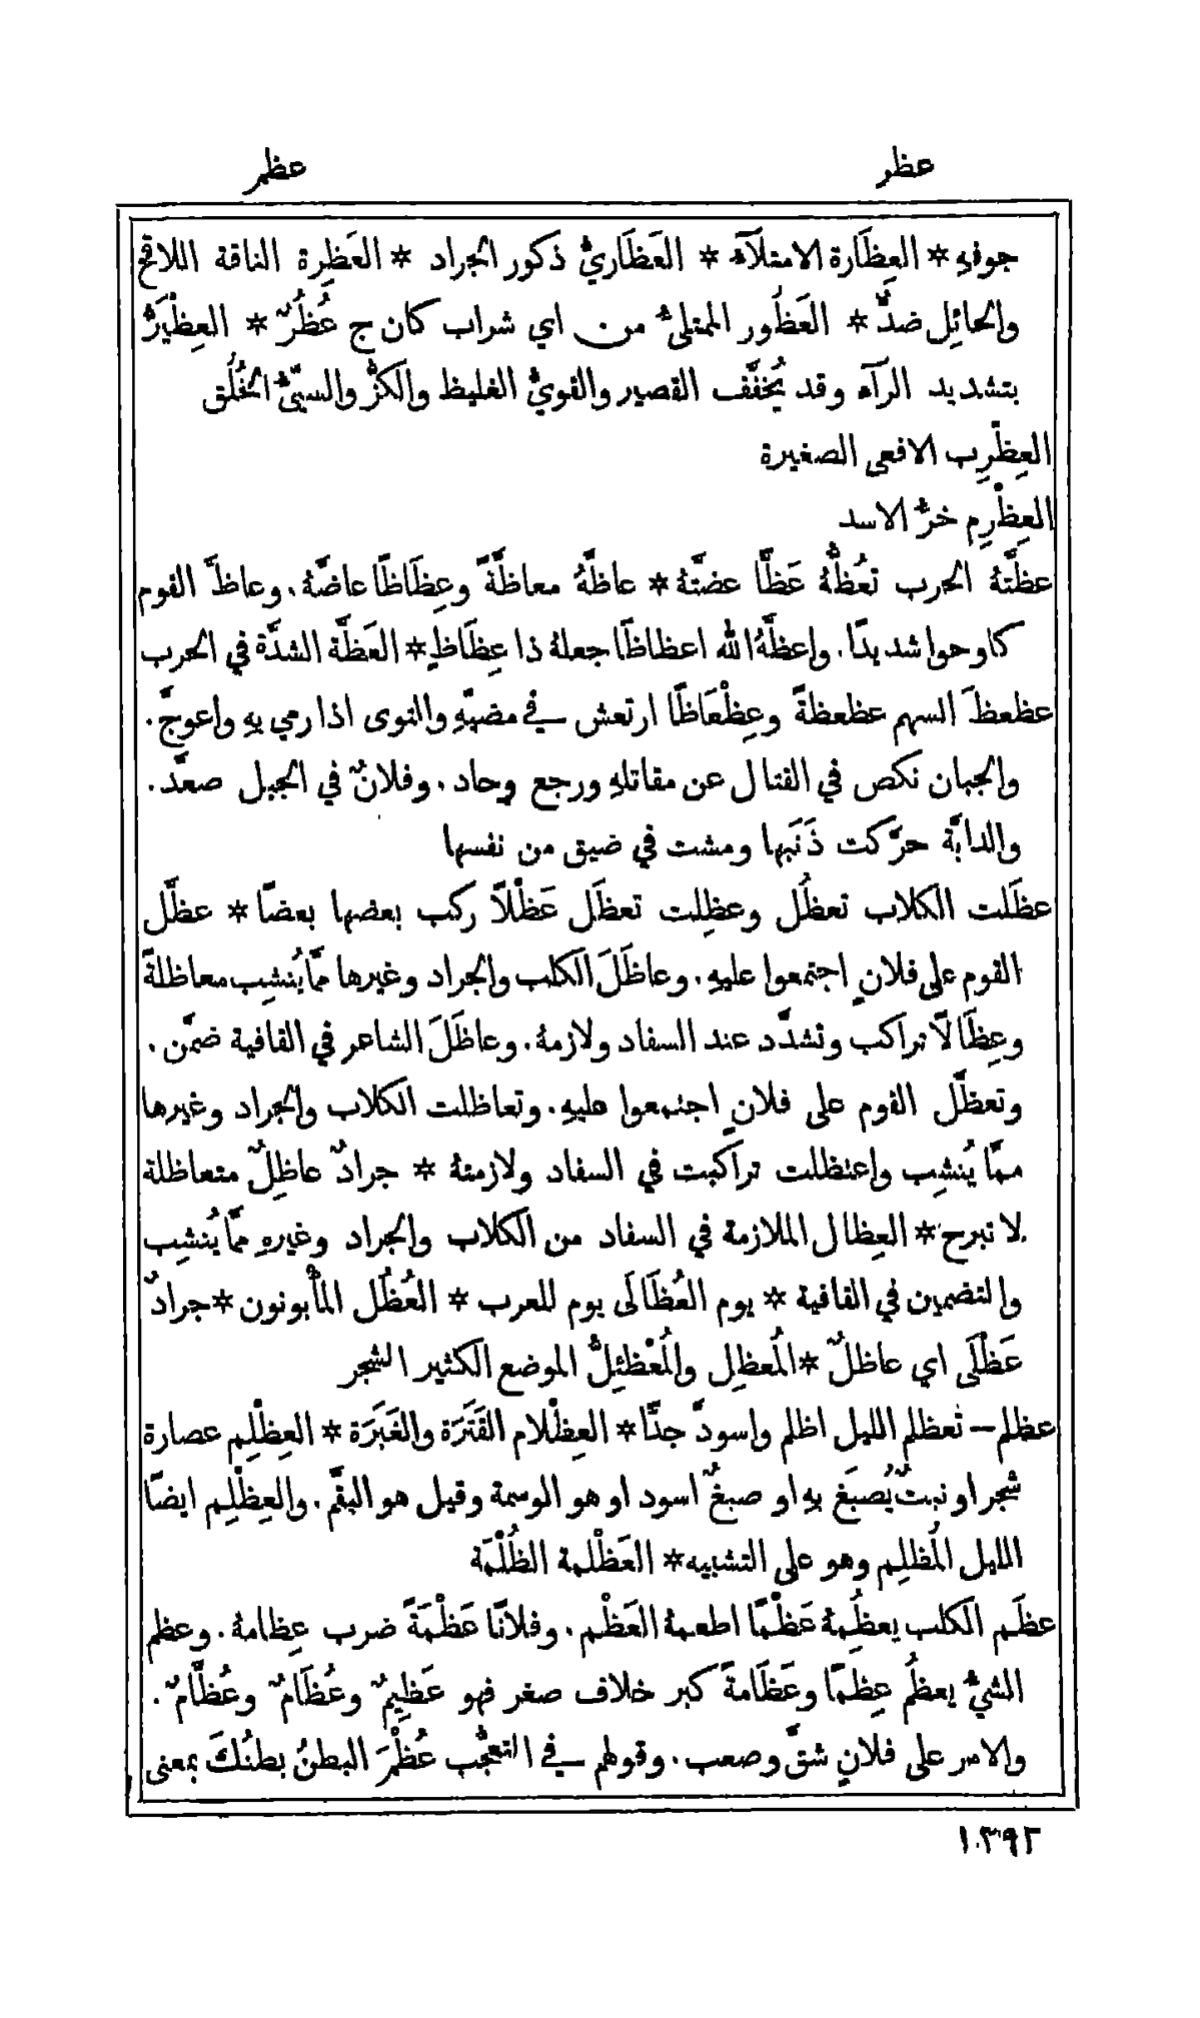 عظر
عظم
جوفهِ * العِظَارة الامتلآء * العَظَاريُّ ذكور الجراد * العَظِرة الناقة اللاقح
والحائِل ضدٌّ * العَظُور الممتلئُ من اي شراب كان ج عُظُرٌ * العِظْيَرُّ
بتشديد الرآء وقد يُخفَّف القصير والقويُّ الغليظ والكَزُّ والسيّئُ الخُلُق
العِظْرِب الافعى الصغيرة
العِظْرِم خرُّ الاسد
عظَّتهُ الحرب تعُظُّهُ عَظًّا عضتَّهُ * عاظَّهُ معاظَّةً وعِظَاظًا عاضَّهُ. وعاظَّ القوم
كاوحوا شديدًا. واعظَّهُ الله اعظاظًا جعلهُ ذا عِظَاظٍ * العَظَّة الشدَّة في الحرب
عظعظَ السهم عظعظةً وعِظْعَاظًا ارتعش في مضيّهِ والتوى اذا رمي بهِ واعوجَّ.
والجبان نكص في القتال عن مقاتلهِ ورجع وحاد. وفلانٌ في الجبل صعَّد.
والدابَّة حرَّكت ذَنَبها ومشت في ضيق من نفسها
عظَلت الكلاب تعظُل وعظِلت تعظَل عَظْلاً ركب بعضها بعضًا * عظَّل
القوم على فلانٍ اجتمعوا عليهِ. وعاظَلَ الكلب والجراد وغيرها ممَّا يُنشِب معاظلةً
وعِظَالاً تراكب وتشدَّد عند السفاد ولازمهُ. وعاظَلَ الشاعر في القافية ضمَّن.
وتعظَّل القوم على فلانٍ اجتمعوا عليهِ. وتعاظلت الكلاب والجراد وغيرها
ممَّا يُنشِب واعتظلت تراكبت في السفاد ولازمتهُ * جرادٌ عاظِلٌ متعاظلة
لا تبرح * العِظال الملازمة في السفاد من الكلاب والجراد وغيرهِ ممَّا يُنشِب
والتضمين في القافية * يوم العُظَالَى يوم للعرب * العُظُل المأْبونون * جرادٌ
عَظْلَى اي عاظلٌ * المُعظِل والمُعْظَئِلُّ الموضع الكثير الشجر
عظلم – تَعظلم الليل اظلم واسودَّ جدًّا * العِظْلام القَتَرَة والغَبَرَة * العِظْلِم عصارة
شجر او نبتٌ يُصبَغ بهِ او صبغٌ اسود او هو الوسمة وقيل هو البقَّم. والعِظْلِم ايضًا
الليل المُظلِم وهو على التشبيه * العَظْلمة الظُلْمَة
عظَم الكلب يعظُمهُ عَظْمًا اطعمهُ العَظْم. وفلانًا عَظْمَةً ضرب عِظامهُ. وعظم
الشيُّ يعظُم عِظمًا وعَظَامةً كبر خلاف صغر فهو عَظِيمٌ وعُظَامٌ وعُظَّامٌ.
والامر على فلانٍ شقَّ وصعب. وقولهم في التعجُّب عُظْمَ البطنُ بطنُكَ بمعنى
١٠٣٩٢